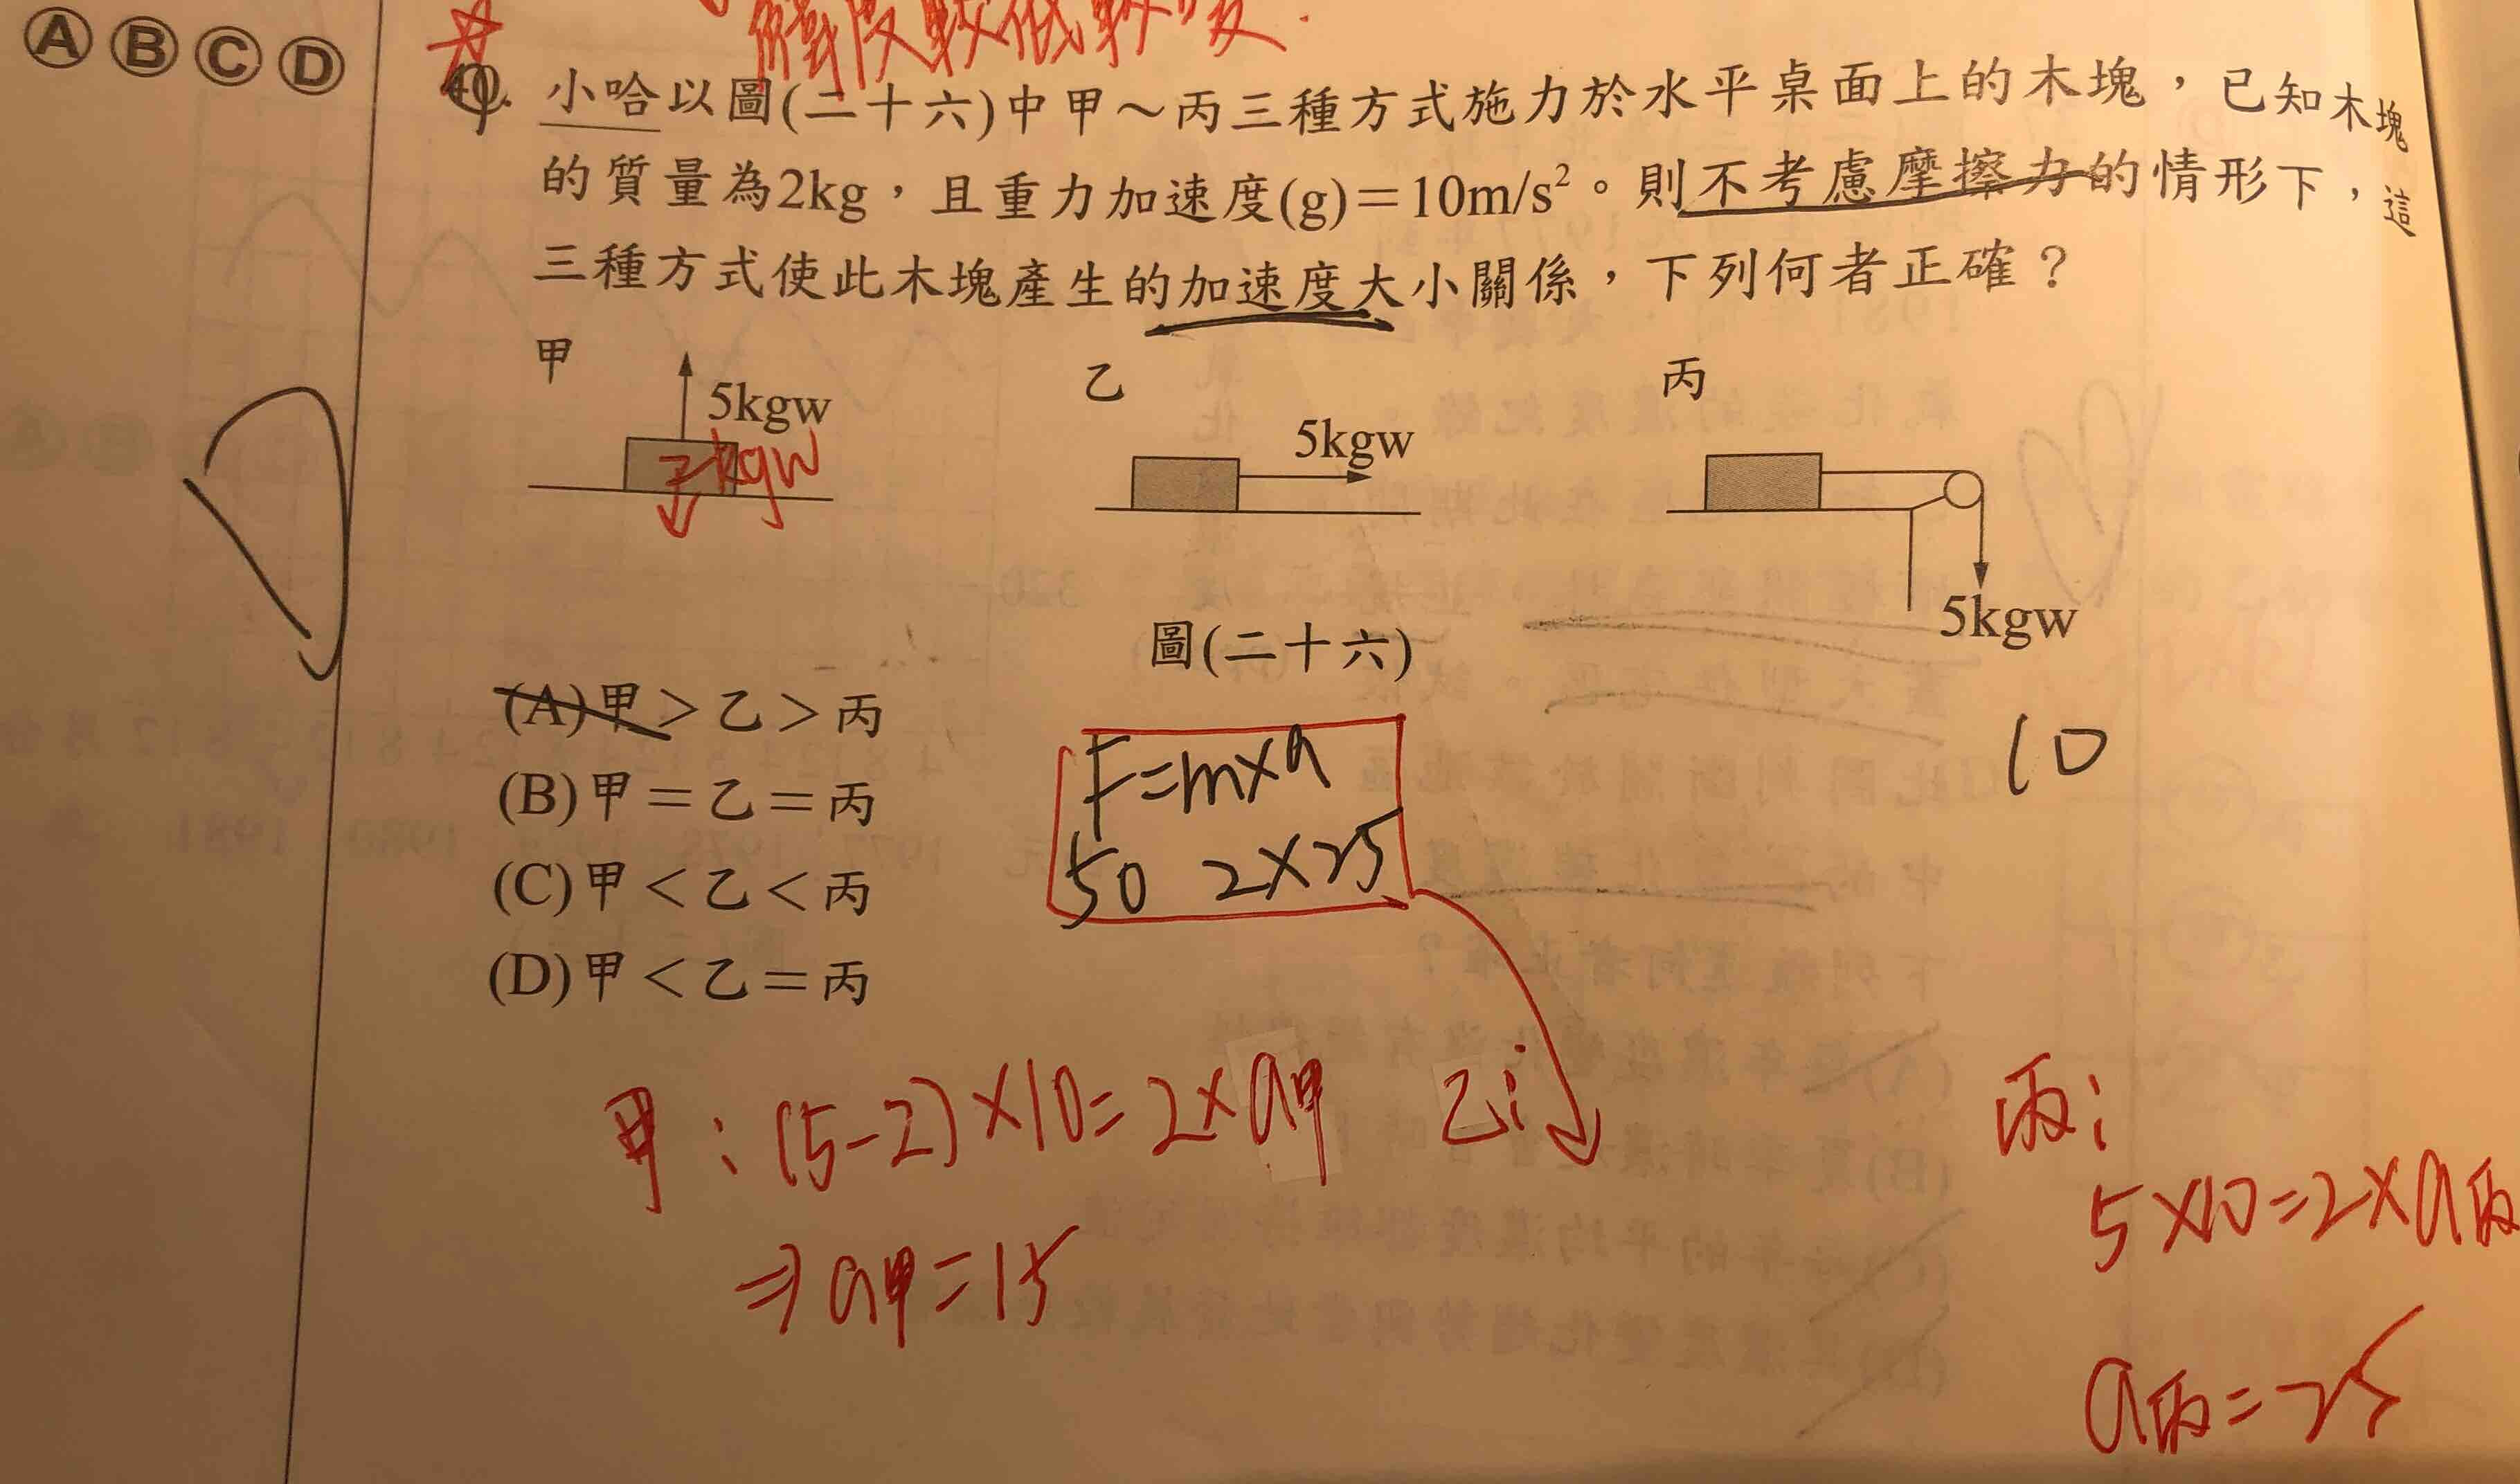 Ⓐ Ⓑ Ⓒ Ⓓ
小哈以圖(二十六)中甲～丙三種方式施力於水平桌面上的木塊，已知木塊
的質量為2kg，且重力加速度(g)＝10m/s²。則不考慮摩擦力的情形下，這
三種方式使此木塊產生的加速度大小關係，下列何者正確？
甲
5kgw
kgw
乙
5kgw
丙
5kgw
圖(二十六)
(A)甲＞乙＞丙
(B)甲＝乙＝丙
(C)甲＜乙＜丙
(D)甲＜乙＝丙
F=m×a
50 2×25
10
甲：(5-2)×10=2×a甲
⇒a甲=15
乙：
丙：
5×10=2×a丙
a丙=25